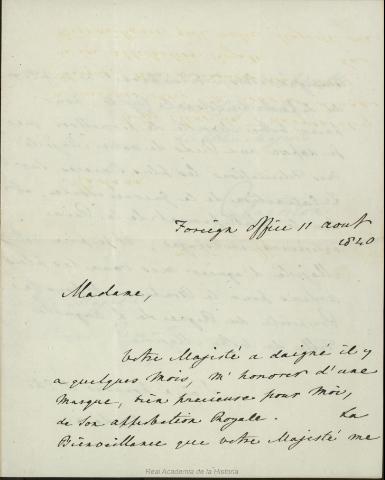 Foreign Office 11 aout
1840
Madame,
Votre Majesté a daigné il y
a quelques mois, m'honorer d'une
marque, bien precieuse pour Moi,
de son approbation Royale. La
Bienveillance que votre Majesté me
Real Academia de la Historia